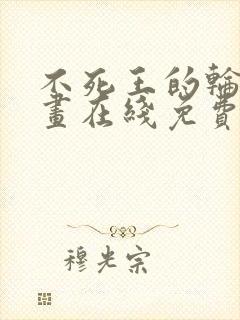 不死王的輪
畫在綫免費
穆光宗